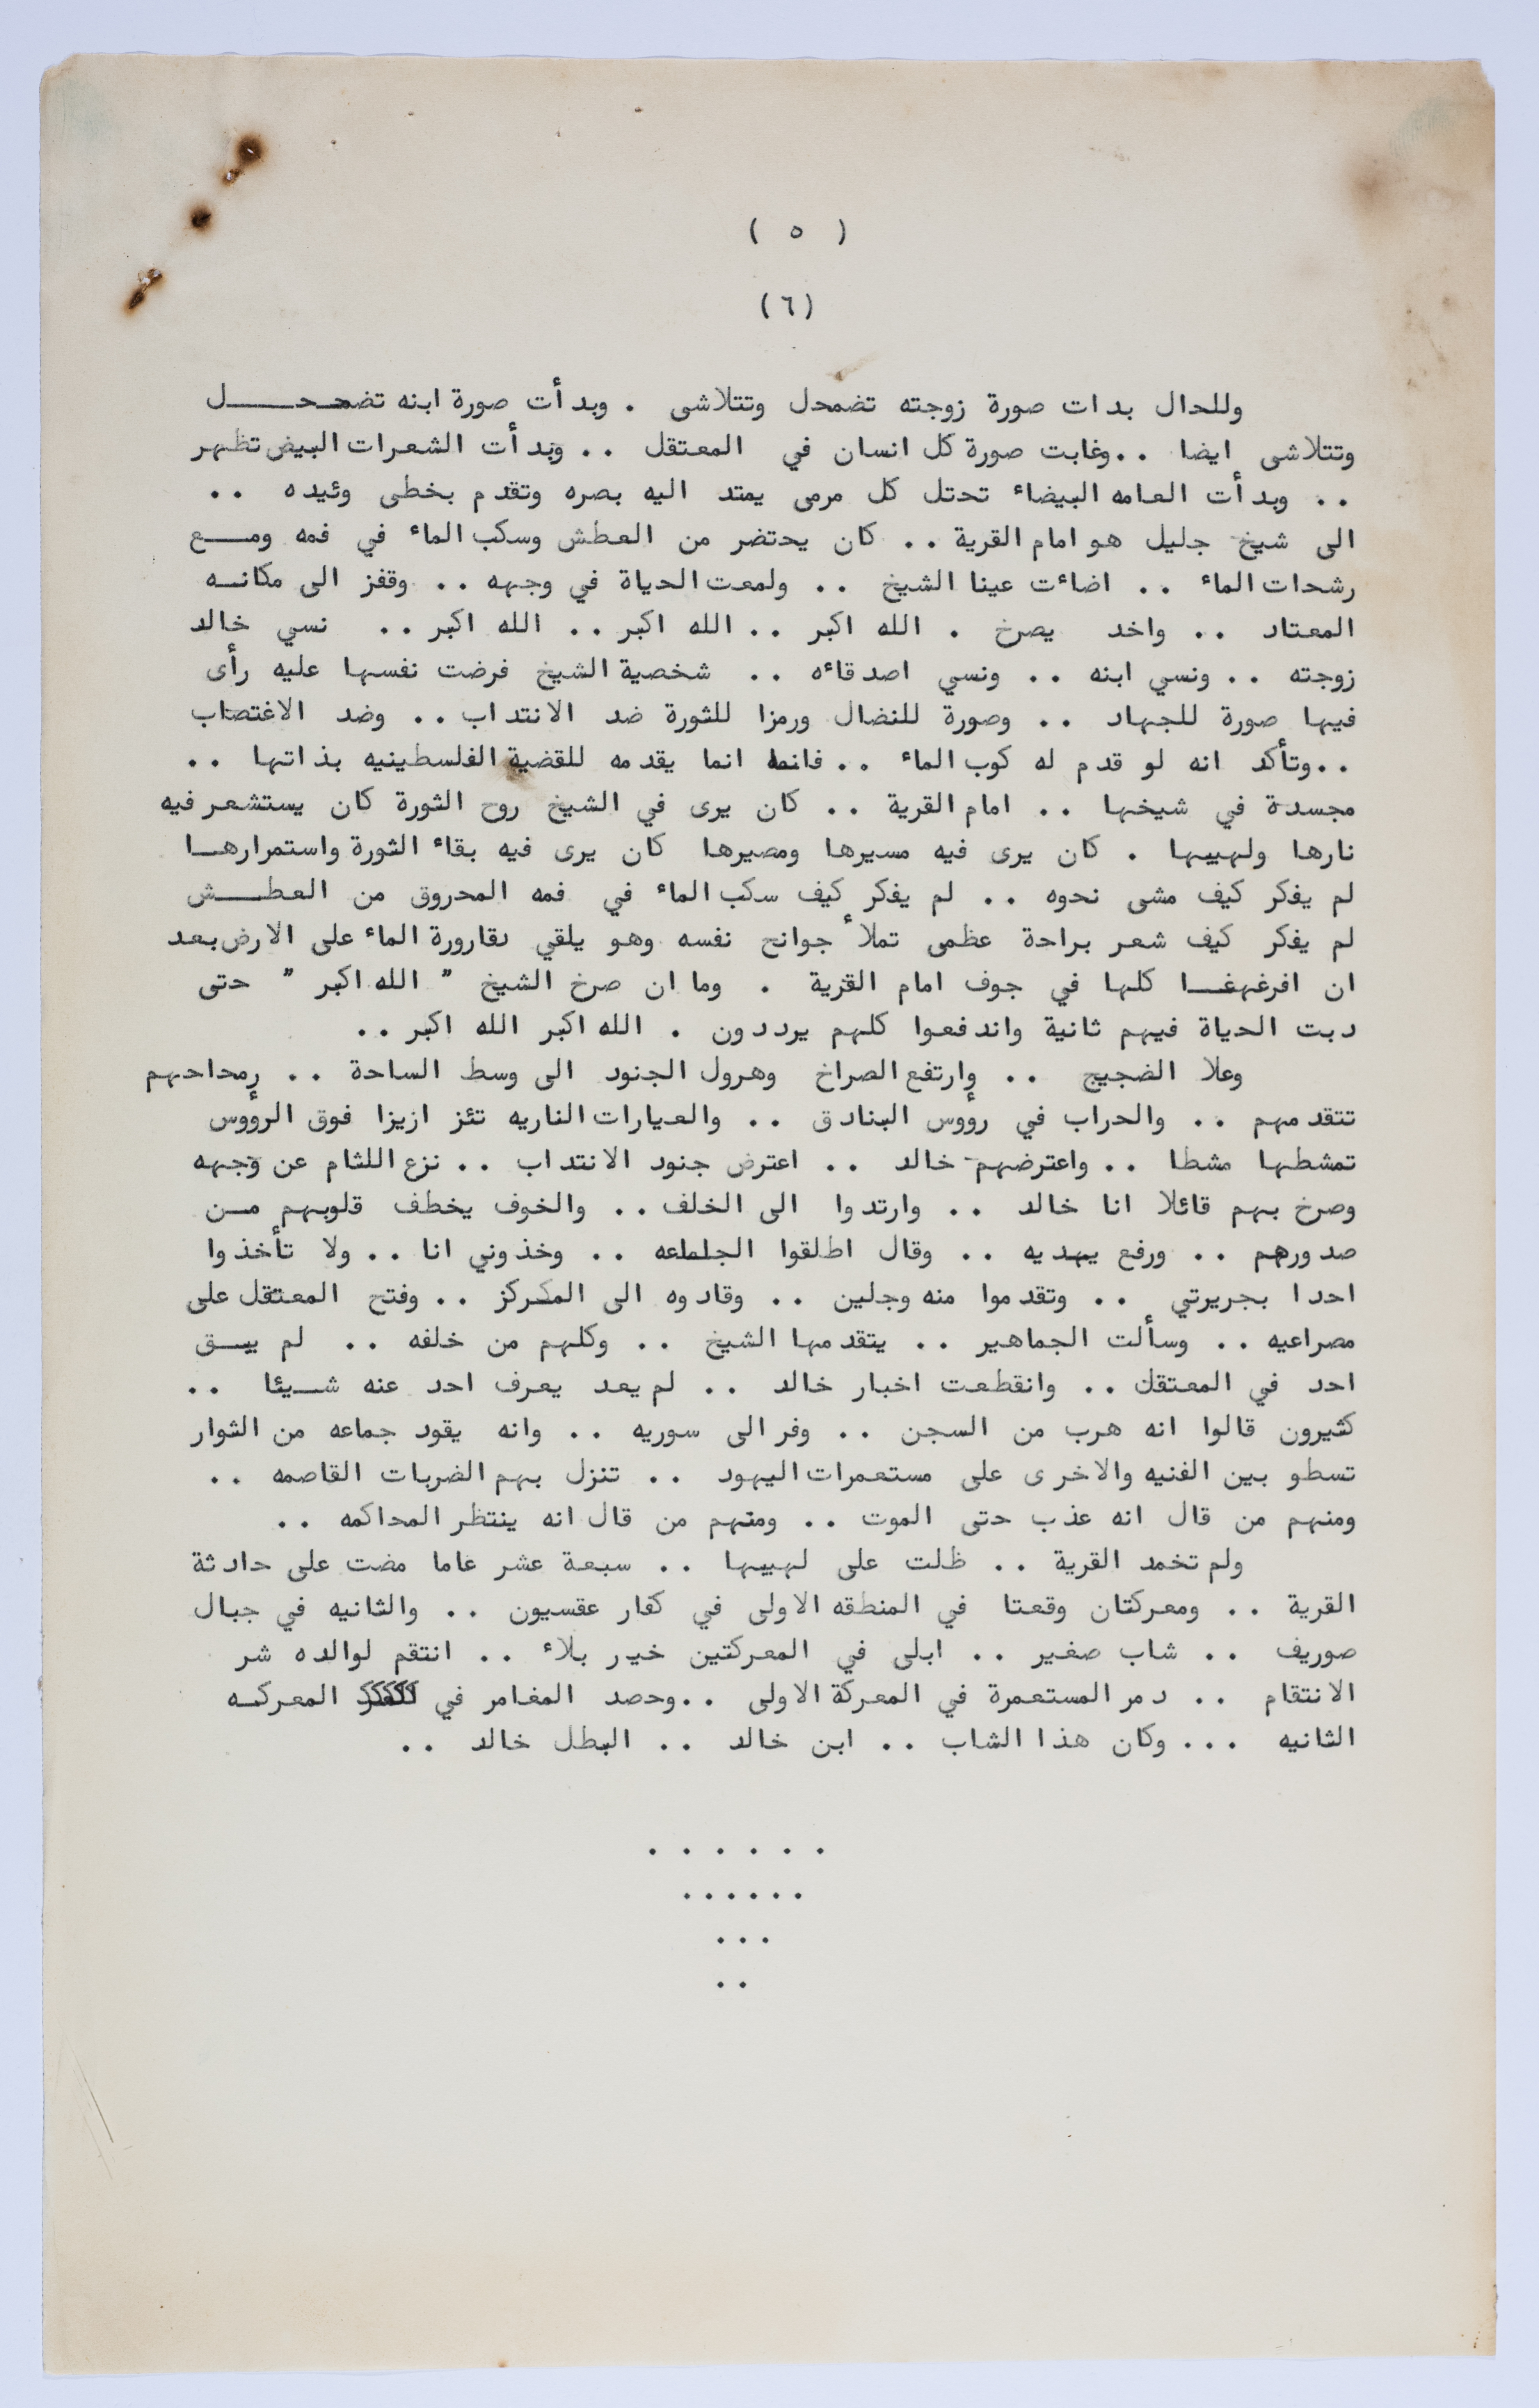 ( ٥ )
(٦)
وللحال بدات صورة زوجته تضمحل وتتلاشى . وبدأت صورة ابنه تضمحـــل
وتتلاشى ايضا ..وغابت صورة كل انسان في المعتقل .. وبدأت الشعرات البيض تظهر
.. وبدأت العامه البيضاء تحتل كل مرمى يمتد اليه بصره وتقدم بخطى وئيده ..
الى شيخ جليل هو امام القرية .. كان يحتضر من العطش وسكب الماء في فمه ومــع
رشحات الماء .. اضاءت عينا الشيخ .. ولمعت الحياة في وجهه .. وقفز الى مكانــه
المعتاد .. واخد يصرخ . الله اكبر .. الله اكبر .. الله اكبر .. نسي خالد
زوجته .. ونسي ابنه .. ونسي اصدقاءه .. شخصية الشيخ فرضت نفسها عليه رأى
فيها صورة للجهاد .. وصورة للنضال ورمزا للثورة ضد الانتداب .. وضد الاغتصاب
..وتأكد انه لو قدم له كوب الماء .. فانما انما يقدمه للقضية الفلسطينيه بذاتها ..
مجسدة في شيخها .. امام القرية .. كان يرى في الشيخ روح الثورة كان يستشعر فيه
نارها ولهيبها . كان يرى فيه مسيرها ومصيرها كان يرى فيه بقاء الثورة واستمرارهــا
لم يفكر كيف مشى نحوه .. لم يفكر كيف سكب الماء في فمه المحروق من العطــش
لم يفكر كيف شعر براحة عظمى تملأ جوانح نفسه وهو يلقي بقارورة الماء على الارض بعد
ان افرغهغــا كلها في جوف امام القرية . وما ان صرخ الشيخ " الله اكبر " حتى
دبت الحياة فيهم ثانية واندفعوا كلهم يرددون . الله اكبر الله اكبر ..
وعلا الضجيج .. وارتفع الصراخ وهرول الجنود الى وسط الساحة ..
تتقدمهم .. والحراب في رؤوس البنادق .. والعيارات الناريه تئز ازيزا فوق الرؤوس
تمشطها مشطا .. واعترضهم خالد .. اعترض جنود الانتداب .. نزع اللثام عن وجهه
وصرخ بهم قائلا انا خالد .. وارتدوا الى الخلف .. والخوف يخطف قلوبهم مــن
صدورهم .. ورفع يهديه .. وقال اطلقوا الجماعه .. وخذوني انا .. ولا تأخذوا
احدا بجريرتي .. وتقدموا منه وجلين .. وقادوه الى المركز .. وفتح المعتقل على
مصراعيه .. وسألت الجماهير .. يتقدمها الشيخ .. وكلهم من خلفه .. لم يبــق
احد في المعتقل .. وانقطعت اخبار خالد .. لم يعد يعرف احد عنه شــيئا ..
كثيرون قالوا انه هرب من السجن .. وفر الى سوريه .. وانه يقود جماعه من الثوار
تسطو بين الفنيه والاخرى على مستعمرات اليهود .. تنزل بهم الضربات القاصمه ..
ومنهم من قال انه عذب حتى الموت .. ومنهم من قال انه ينتظر المحاكمه ..
ولم تخمد القرية .. ظلت على لهيبها .. سبعة عشر عاما مضت على حادثة
القرية .. ومعركتان وقعتا في المنطقه الاولى في كفار عقسيون .. والثانيه في جبال
صوريف .. شاب صغير .. ابلى في المعركتين خير بلاء .. انتقم لوالده شر
الانتقام .. دمر المستعمرة في المعركة الاولى ..وحصد المغامر في المعركــه
الثانيه ... وكان هذا الشاب .. ابن خالد .. البطل خالد ..
. . . . . .
. . . . . .
. . .
. .